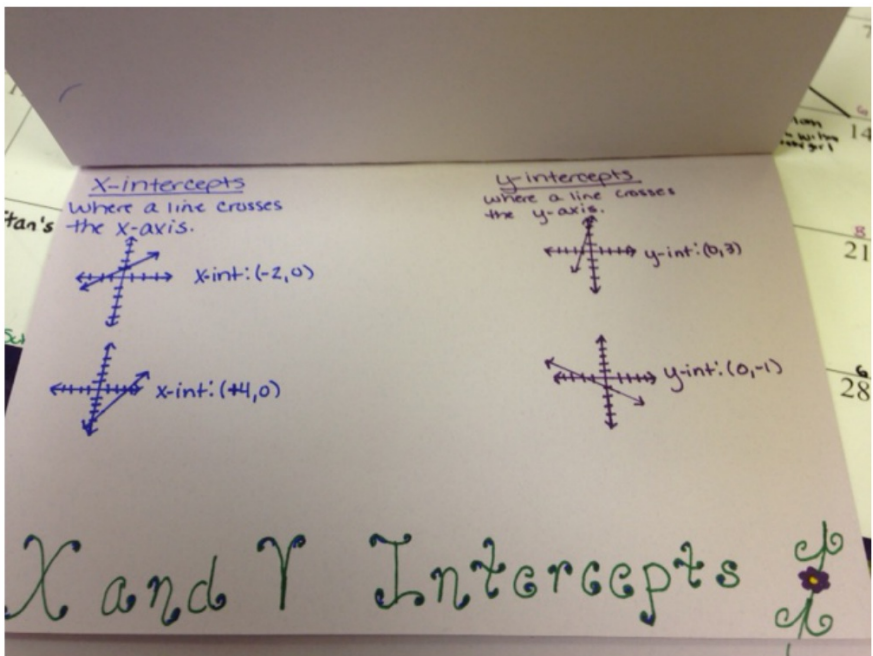 x-intercepts
where a line crosses
the x-axis.
x-int: (-2,0)
x-int: (+4,0)
y-intercepts
where a line crosses
the y-axis.
y-int: (0,3)
y-int: (0,-1)
X and Y Intercepts
tan's
7
6
14
8
21
6
28